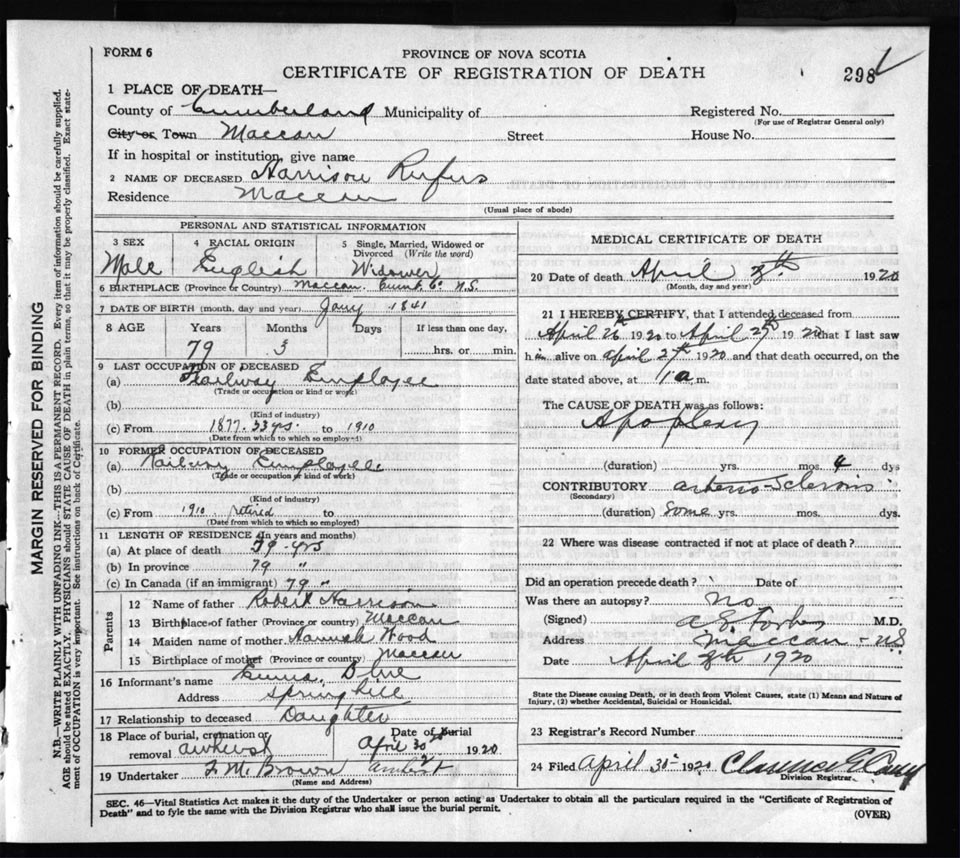 FORM 6
PROVINCE OF NOVA SCOTIA
CERTIFICATE OF REGISTRATION OF DEATH
298
1 PLACE OF DEATH—
County of Cumberland Municipality of
Registered No.
(For use of Registrar General only)
City or Town Maccan Street House No.
If in hospital or institution, give name
2 NAME OF DECEASED Harrison Rufus
Residence Maccan
(Usual place of abode)
PERSONAL AND STATISTICAL INFORMATION
3 SEX
Male
4 RACIAL ORIGIN
English
5 Single, Married, Widowed or Divorced (Write the word)
Widower
6 BIRTHPLACE (Province or Country) Maccan. Cumb. Co. N.S.
7 DATE OF BIRTH (month, day and year) Jany 1841
8 AGE Years Months Days If less than one day,
79 3 hrs. or min.
9 LAST OCCUPATION OF DECEASED
(a) Railway Employee
(Trade or occupation or kind or work)
(b)
(Kind of industry)
(c) From 1877. 33 yrs. to 1910
(Date from which to which so employed)
10 FORMER OCCUPATION OF DECEASED
(a) Railway Employee
(Trade or occupation or kind of work)
(b)
(Kind of industry)
(c) From 1910 retired to
(Date from which to which so employed)
11 LENGTH OF RESIDENCE (In years and months)
(a) At place of death 79 yrs
(b) In province 79 "
(c) In Canada (if an immigrant) 79 "
Parents
12 Name of father Robert Harrison
13 Birthplace of father (Province or country) Maccan
14 Maiden name of mother Hannah Wood
15 Birthplace of mother (Province or country) Maccan
16 Informant's name
Address Springhill
17 Relationship to deceased Daughter
18 Place of burial, cremation or removal Amherst
Date of Burial
April 30 1920
19 Undertaker F. M. Brown Amherst
(Name and Address)
MEDICAL CERTIFICATE OF DEATH
20 Date of death April 1920
(Month, day and year)
21 I HEREBY CERTIFY, that I attended deceased from
April 26th 1920 to April 1920 that I last saw
him alive on April 1920 and that death occurred, on the
date stated above, at 1 a m.
The CAUSE OF DEATH was as follows:
Apoplexy
(duration) yrs. mos. 4 dys
CONTRIBUTORY arterio-Sclerosis
(Secondary)
(duration) Some yrs. mos. dys.
22 Where was disease contracted if not at place of death?
Did an operation precede death? Date of
Was there an autopsy? No
(Signed) M.D.
Address Maccan - NS
Date April 1920
State the Disease causing Death, or in death from Violent Causes, state (1) Means and Nature of
Injury, (2) whether Accidental, Suicidal or Homicidal.
23 Registrar's Record Number
24 Filed April 30 1920 Clarence E
Division Registrar
SEC. 46—Vital Statistics Act makes it the duty of the Undertaker or person acting as Undertaker to obtain all the particulars required in the "Certificate of Registration of
Death" and to fyle the same with the Division Registrar who shall issue the burial permit.
(OVER)
MARGIN RESERVED FOR BINDING
N.B.—WRITE PLAINLY WITH UNFADING INK—THIS IS A PERMANENT RECORD. Every item of information should be carefully supplied.
AGE should be stated EXACTLY. PHYSICIANS should STATE CAUSE OF DEATH in plain terms, so that it may be properly classified. Exact state-
ment of OCCUPATION is very important. See instructions on back of Certificate.